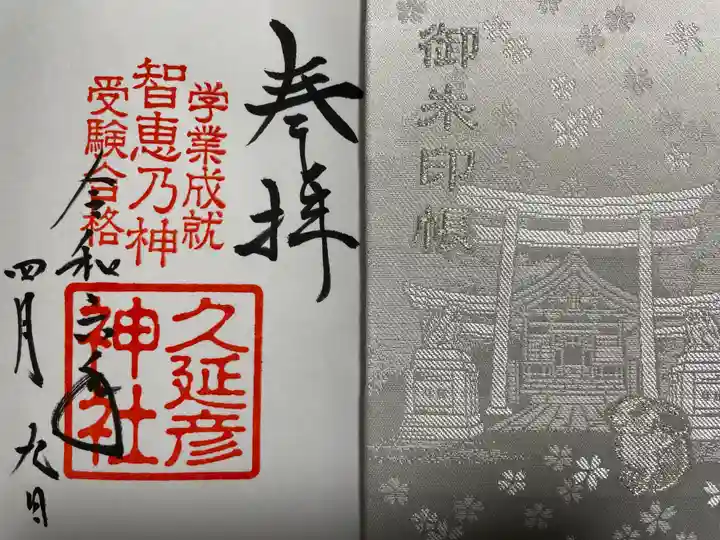 奉拝
学業成就
智恵乃神
受験合格
久延彦
神社
令和六年
四月九日
御朱印帳